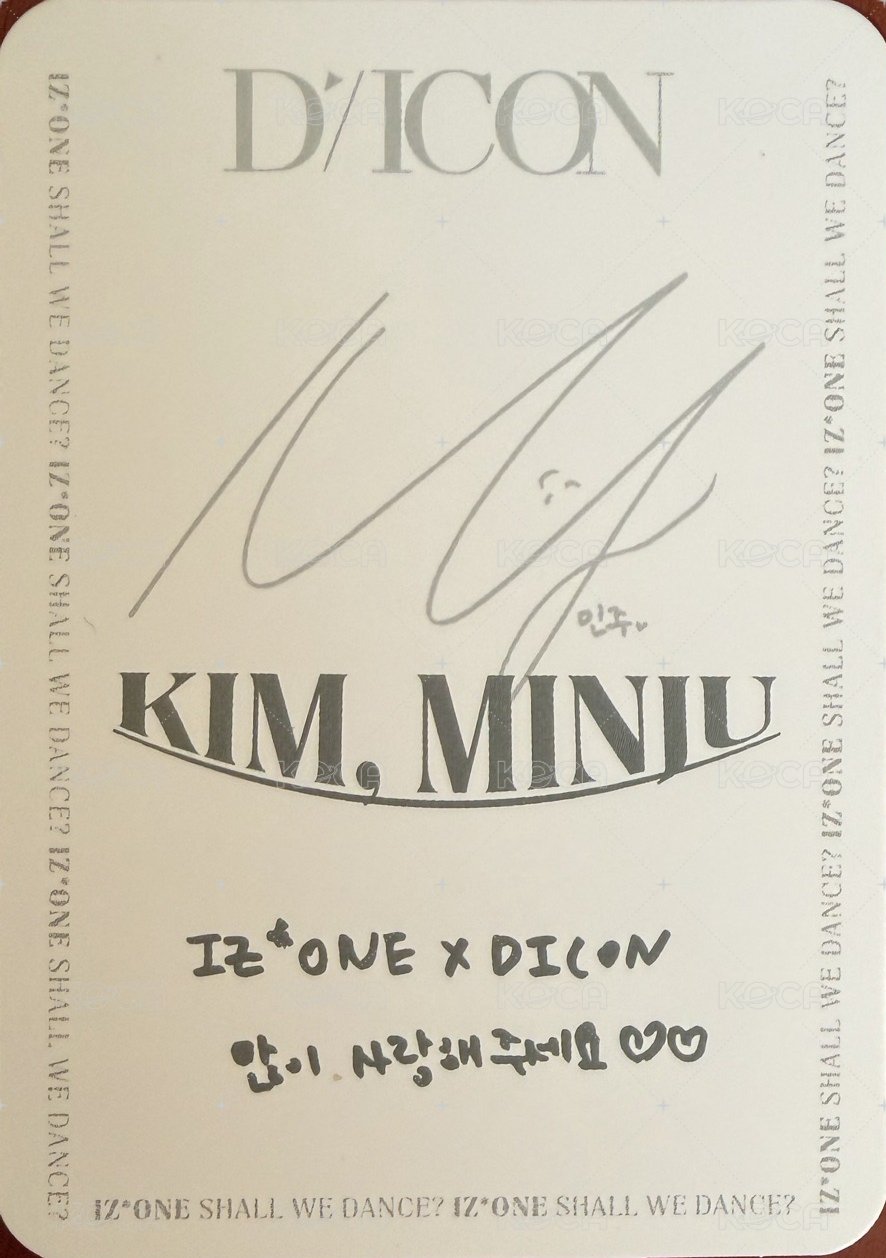 D'/ICON
민주
KIM, MINJU
IZ*ONE X DICON
많이 사랑해 주세요 ♡♡
IZ*ONE SHALL WE DANCE? IZ*ONE SHALL WE DANCE? IZ*ONE SHALL WE DANCE?
IZ*ONE SHALL WE DANCE? IZ*ONE SHALL WE DANCE?
IZ*ONE SHALL WE DANCE? IZ*ONE SHALL WE DANCE? IZ*ONE SHALL WE DANCE?
KOCA